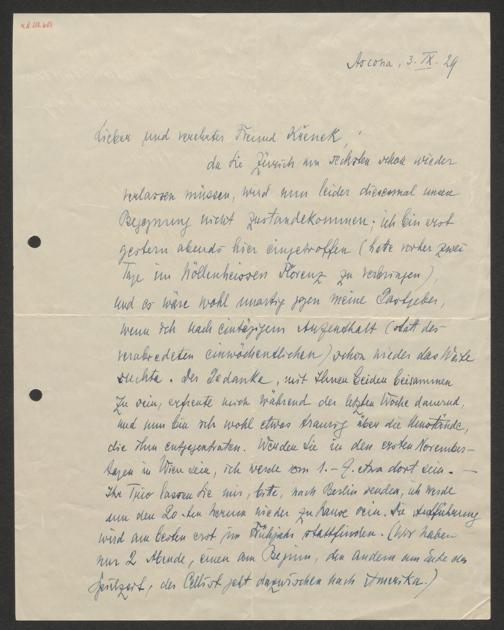 Ascona, 3. IX. 29
Lieber und verehrter Freund Křenek,
da Sie Zürich am sechsten schon wieder
verlassen müssen, wird nun leider diesesmal unsere
Begegnung nicht zustandekommen; ich bin erst
gestern abends hier eingetroffen (hatte vorher zwei
Tage im höllenheissen Florenz zu verbringen),
und es wäre wohl unartig gegen meine Gastgeber,
wenn ich nach eintägigem Aufenthalt (statt des
verabredeten einwöchentlichen) schon wieder das Weite
suchte. Der Gedanke, mit Ihnen beiden beisammen
zu sein, erfreute mich während der letzten Woche dauernd,
und nun bin ich wohl etwas traurig über die Umstände,
die ihm entgegentraten. Werden Sie in den ersten November-
tagen in Wien sein, ich werde vom 1.–9. etwa dort sein. –
Ihr Trio lassen Sie mir, bitte, nach Berlin senden, ich werde
um den 20-ten herum wieder zu Hause sein. Die Aufführung
wird am besten erst im Frühjahr stattfinden. (Wir haben
nur 2 Abende, einen am Beginn, den andern am Ende der
Spielzeit, der Cellist geht dazwischen nach Amerika.)